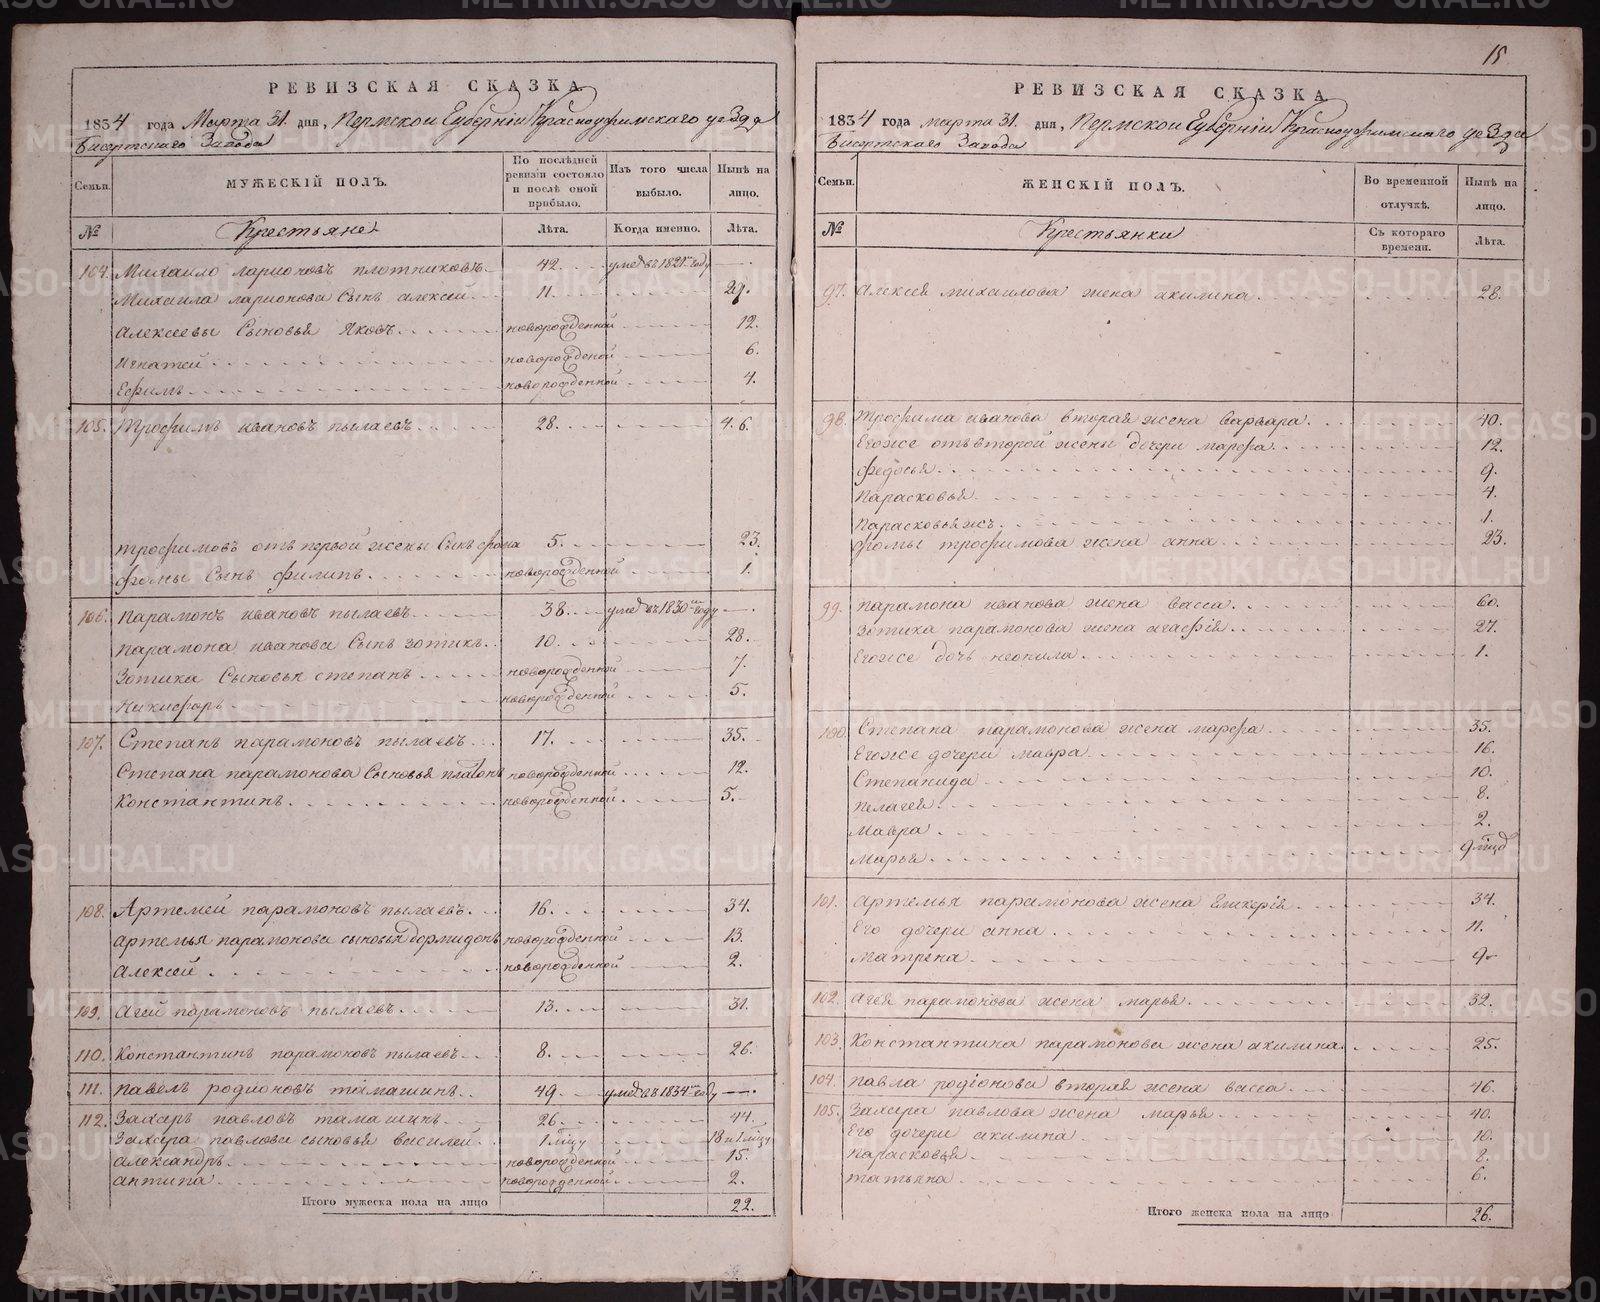 РЕВИЗСКАЯ СКАЗКА
1834 года Марта 31. дня, Пермской Губерніи Красноуфимскаго уезда
Бисертскаго Завода
Семьи.
МУЖЕСКІЙ ПОЛЪ.
По послѣдней ревизіи состояло и послѣ оной прибыло.
Изъ того числа выбыло.
Нынѣ на лицо.
№
Крестьяне
Лѣта.
Когда именно.
Лѣта.
104. Михаило ларионовъ плотниковъ 42. умре въ 1821м году
Михаила ларионова Сынъ алексей 11. 29.
алексеевы Сыновья Яковъ новорожденной 12.
Игнатей новорожденой 6.
Ефимъ новорожденной 4.
105. Трофимъ ивановъ пылаевъ 28. 46.
трофимовъ отъ первой жены Сынъ фома 5. 23.
фомы Сынъ филипъ новорожденной 1.
106. парамонъ ивановъ пылаевъ 38. умре въ 1830м году
парамона иванова Сынъ зотикъ 10. 28.
Зотика Сыновья степанъ новорожденной 7.
Никифоръ новорожденной 5.
107. Степанъ парамоновъ пылаевъ 17. 35.
Степана парамонова Сыновья платонъ новорожденной 12.
Константинъ новорожденной 5.
108. Артемей парамоновъ пылаевъ 16. 34.
артемья парамонова сыновья дормидонъ новорожденной 13.
алексей новорожденной 2.
109. агей парамоновъ пылаевъ 13. 31.
110. Константинъ парамоновъ пылаевъ 8. 26.
111. павелъ родионовъ тамашинъ 49. умре въ 1834м году
112. Захаръ павловъ тамашинъ 26. 44.
Захара павлова сыновья василей 1 мцу 18 и 1 мцу
александръ новорожденной 15.
антипа новорожденной 2.
Итого мужеска пола на лицо 22.
15
РЕВИЗСКАЯ СКАЗКА
1834 года марта 31. дня, Пермской Губерніи Красноуфимскаго уезда
Бисертскаго Завода
Семьи.
ЖЕНСКІЙ ПОЛЪ.
Во временной отлучкѣ.
Нынѣ на лицо.
№
Крестьянки
Съ котораго времени.
Лѣта.
97. алексея михаилова жена акилина 28.
98. трофима иванова вторая жена варвара 40.
Егоже отъ второй жены дочери марфа 12.
федосья 9.
Парасковья 4.
Парасковья жъ 1.
фомы трофимова жена анна 23.
99. парамона иванова жена васса 60.
Зотика парамонова жена агафія 27.
Егоже дочь неонила 1.
100. Степана парамонова жена марфа 35.
Егоже дочери мавра 16.
Степанида 10.
Пелагея 8.
Мавра 2.
Марья 9 мцд
101. артемья парамонова жена Гликерія 34.
Его дочери анна 11.
Матрена 9
102. агея парамонова жена марья 32.
103. Константина парамонова жена акилина 25.
104. павла родіонова вторая жена васса 46.
105. Захара павлова жена марья 40.
Его дочери акилина 10.
Парасковья 8.
татьяна 6.
Итого женска пола на лицо 26.
METRIKI.GASO-URAL.RU